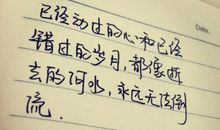 Date.
已经动过的心和已经
错过的岁月，都像逝
去的河水，永远无法倒
流.